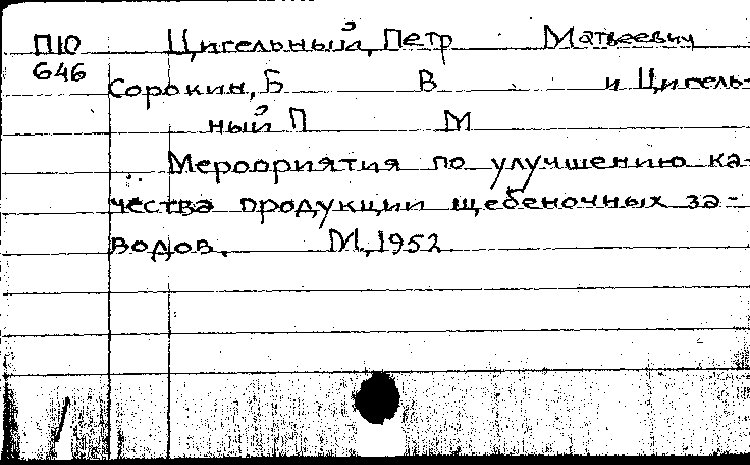 П10 Цигельный, Петр Матвеевич
646 Сорокин, Б В и Цигель-
ный П М
Мероприятия по улучшению ка-
чества продукции щебеночных за-
водов. М, 1952